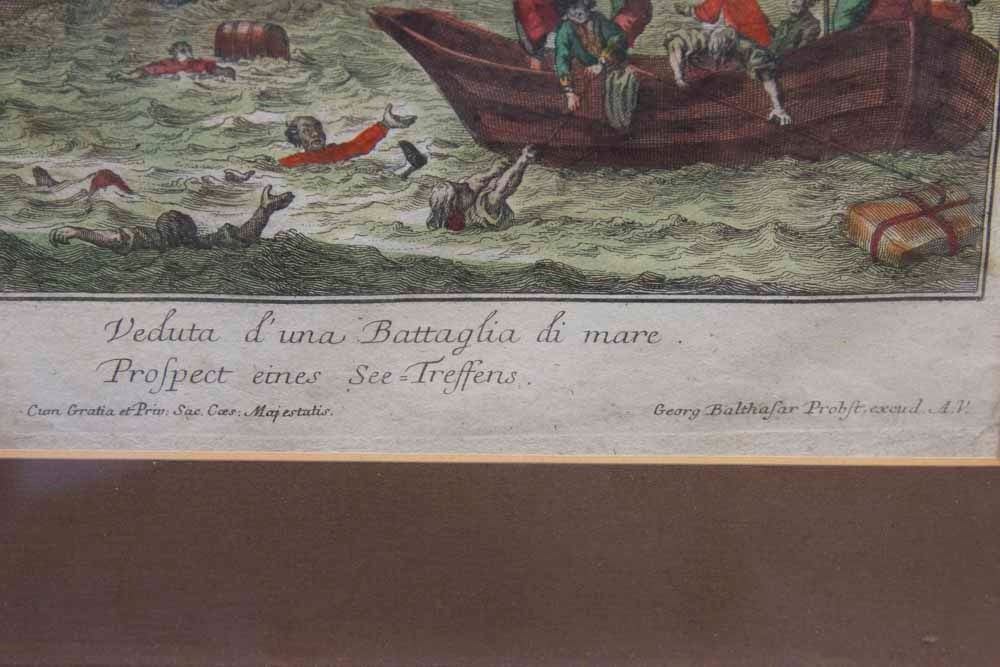 Veduta d'una Battaglia di mare.
Proſpect eines See=Treffens.
Cum Gratia et Priv: Sac. Cæs: Majestatis.
Georg Balthaſar Probſt. excud. A.V.